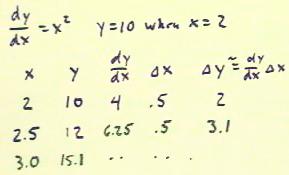 dy/dx = x² y=10 when x=2
x y dy/dx Δx Δy ≈ dy/dx Δx
2 10 4 .5 2
2.5 12 6.25 .5 3.1
3.0 15.1 .. .. ..